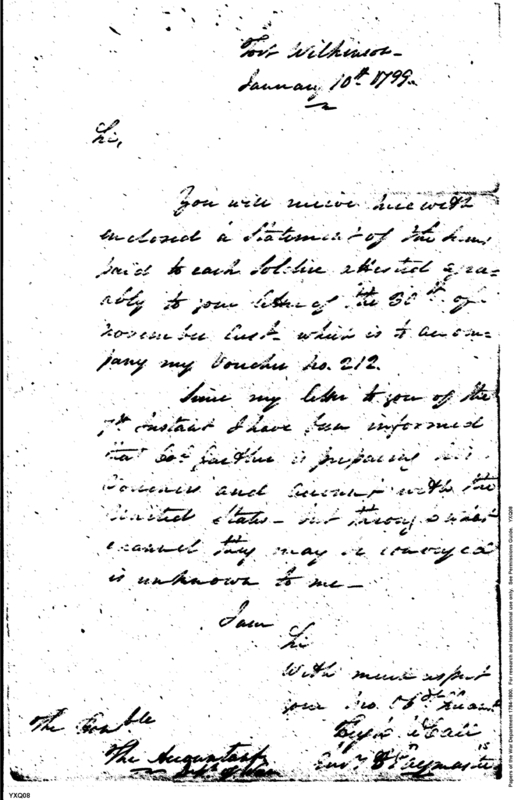 Fort Wilkinson
January 10th 1799.
Sir,
You will receive herewith
enclosed a Statement of the
paid to each Soldier attested agree=
ably to your letter of the 30th of
November last which is to accom=
pany my Voucher No. 212.
Since my letter to you of the
7th Instant I have been informed
that Col Gaither is preparing his
Vouchers and Account with the
United States but through what
channel they may be conveyed
is unknown to me
I am
Sir
With much respect
your mo. Ob
The Honble
The Accountant
Paymaster
Papers of the War Department 1784-1800. For research and instructional use only. See Permissions Guide. YXQ08
YXQ08